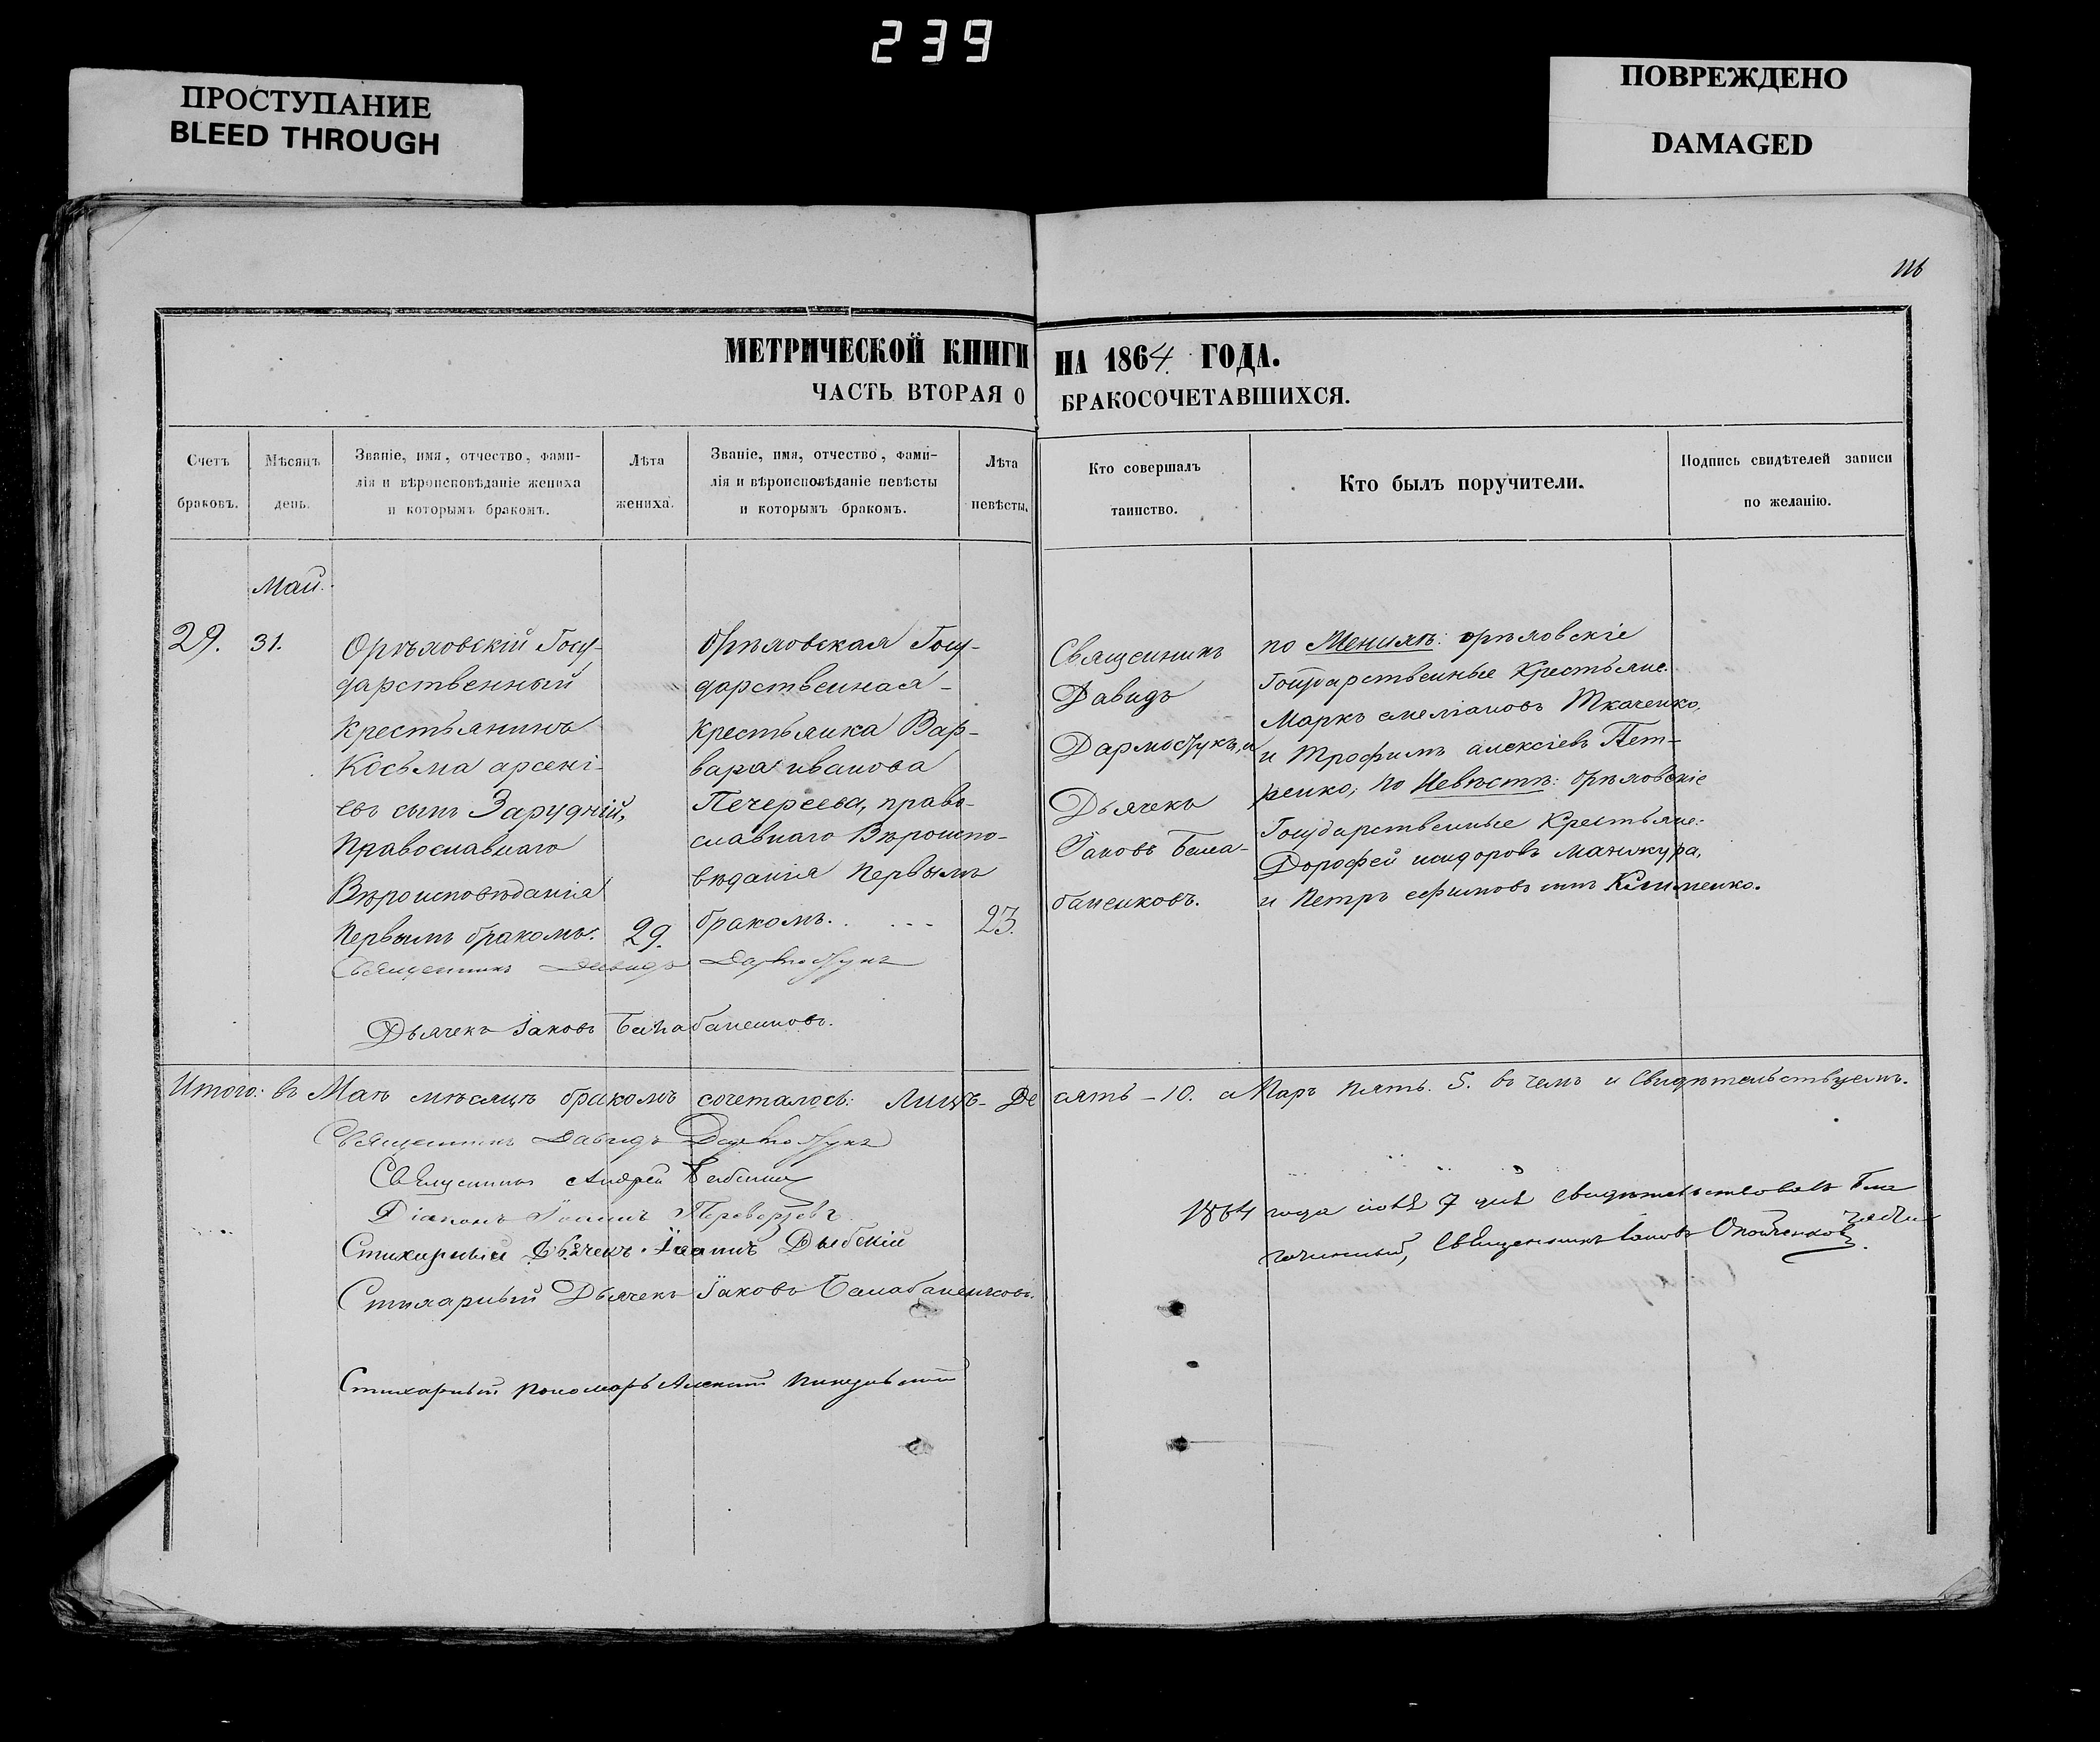 239
ПРОСТУПАНИЕ
BLEED THROUGH
ПОВРЕЖДЕНО
DAMAGED
116
МЕТРИЧЕСКОЙ КНИГИ НА 1864 ГОДА.
ЧАСТЬ ВТОРАЯ О БРАКОСОЧЕТАВШИХСЯ.
Счетъ
браковъ.
Мѣсяцъ
день.
Званіе, имя, отчество, фами-
лія и вѣроисповѣданіе жениха
и которымъ бракомъ.
Лѣта
жениха.
Званіе, имя, отчество, фами-
лія и вѣроисповѣданіе невѣсты
и которымъ бракомъ.
Лѣта
невѣсты.
Кто совершалъ
таинство.
Кто былъ поручители.
Подпись свидѣтелей записи
по желанію.
Май.
29.
31.
Орѣловскій Госу-
дарственный
Крестьянинъ
Косьма арсені-
евъ сынъ Зарудній,
Православнаго
Вѣроисповѣданія
Первымъ бракомъ.
29.
Орѣловская Госу-
дарственная
крестьянка Вар-
вара иванова
Печерсева, право-
славнаго Вѣроиспо-
вѣданія Первымъ
бракомъ.
23.
Священникъ
Давидъ
Дармостукъ, и
Дьячекъ
Іаковъ Бала-
баненковъ.
по Женихѣ: орѣловскіе
Государственные Крестьяне.
Маркъ емеліановъ Ткаченко,
и Трофимъ алексіевъ Пет-
ренко; по Невѣстѣ: Орѣловскіе
Государственные Крестьяне:
Дорофей исидоровъ Манжура,
и Петръ ефимовъ Клименко.
Священникъ Давидъ Дармостукъ
Дьячекъ Іаковъ Балабаненковъ.
Итого: въ Маѣ мѣсяцѣ бракомъ сочеталось: Лицъ - Десять - 10. а Паръ Пять. 5. въ чемъ и Свидѣтельствуемъ.
Священникъ Давидъ Дармостукъ
Священникъ Андрей
Діаконъ Іоаннъ Переверзевъ
Стихарный Дьячекъ Іоаннъ Дыбскій
Стихарный Дьячекъ Іаковъ Балабаненковъ.
Стихарный пономарь Алексій
1864 года 7 дня свидѣтельствовалъ Бла
гочинный, Священникъ